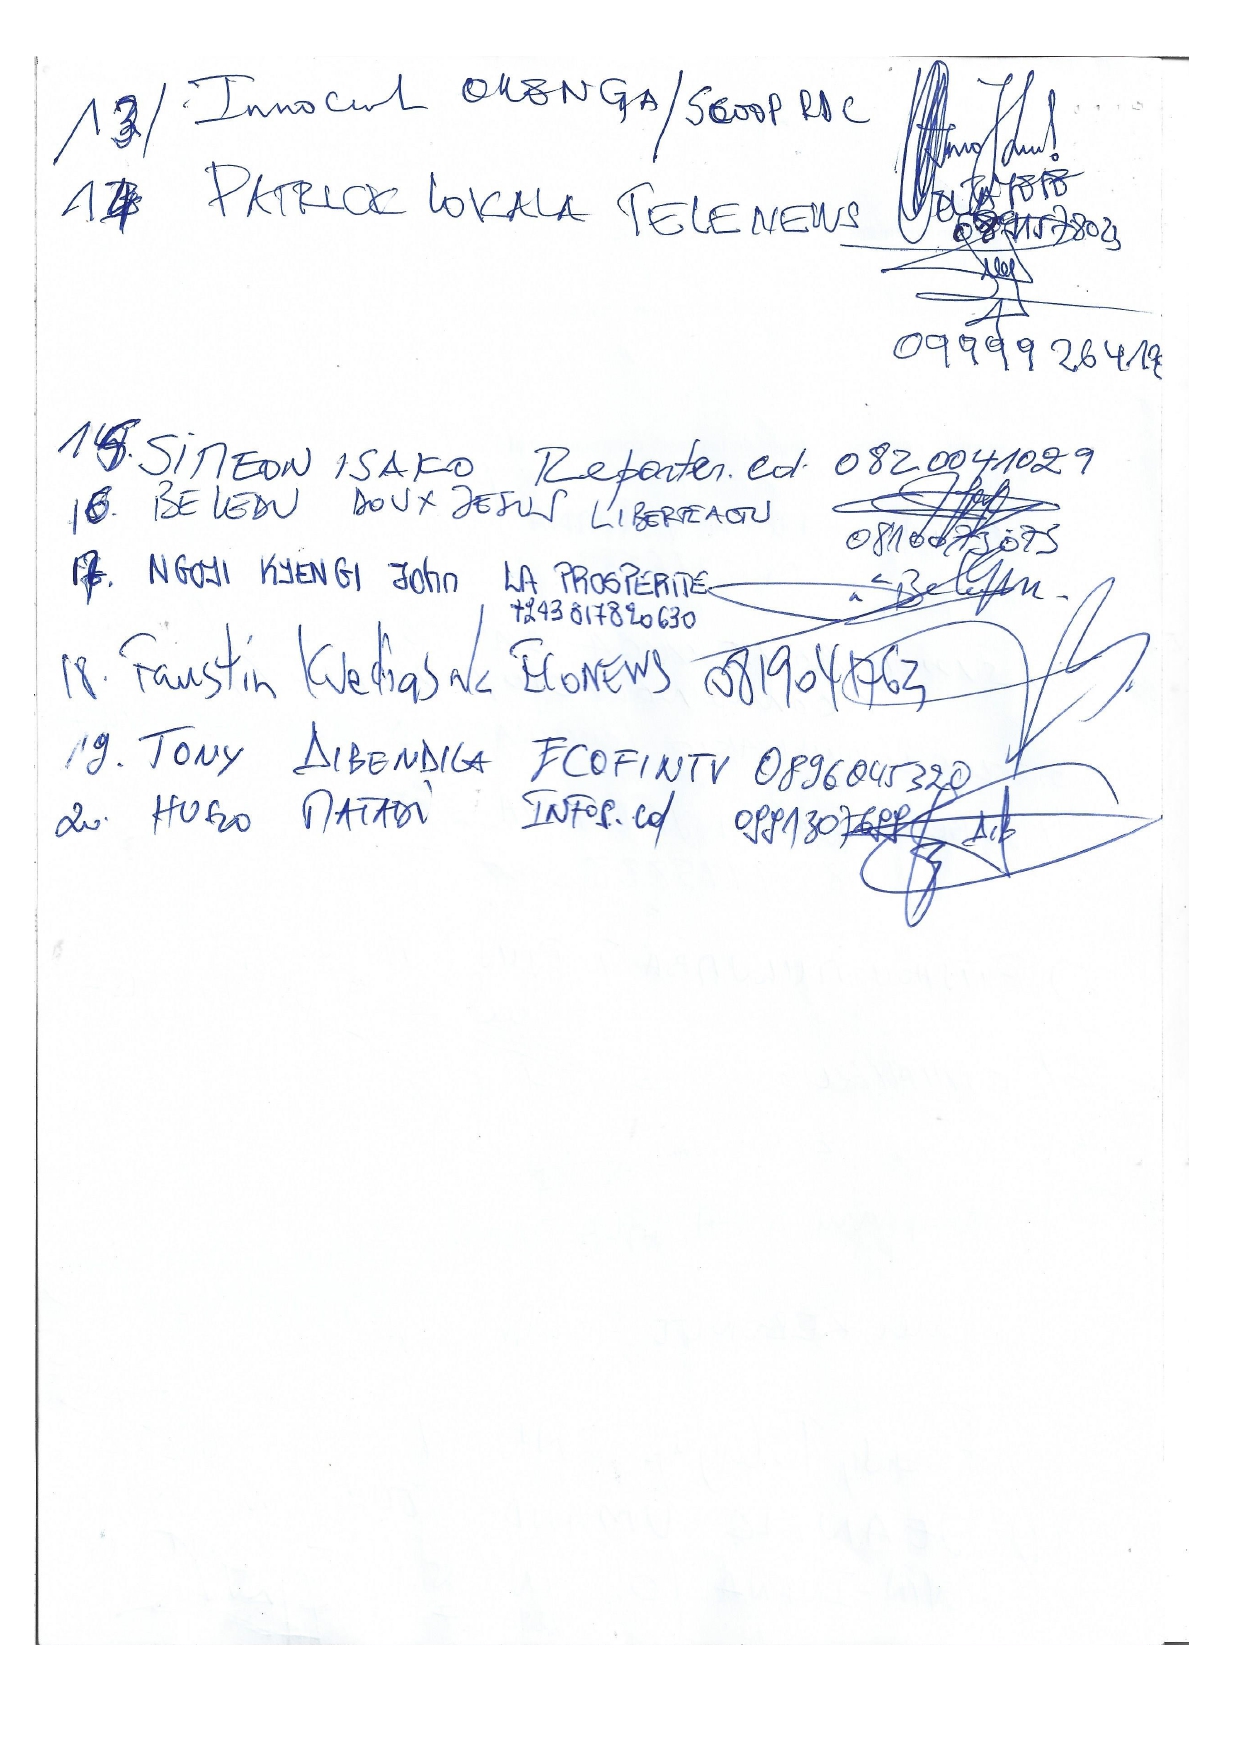 13/ Innocent OKENGA/SCOOP RDC
0891578023
14 PATRICK LOKALA TELENEWS
0999926419
15. SIMEON ISAKO Reporter.cd 0820041029
16. BELEDU DOUX JESUS LIBERTEACTU
0810073075
17. NGOYI KYENGI John LA PROSPERITE
+243 817820630
18. Faustin ECONEWS 0819041763
19. TONY DIBENDILA ECOFINTV 0896045320
20. HUGO MATADI INFOS.cd 0991307699